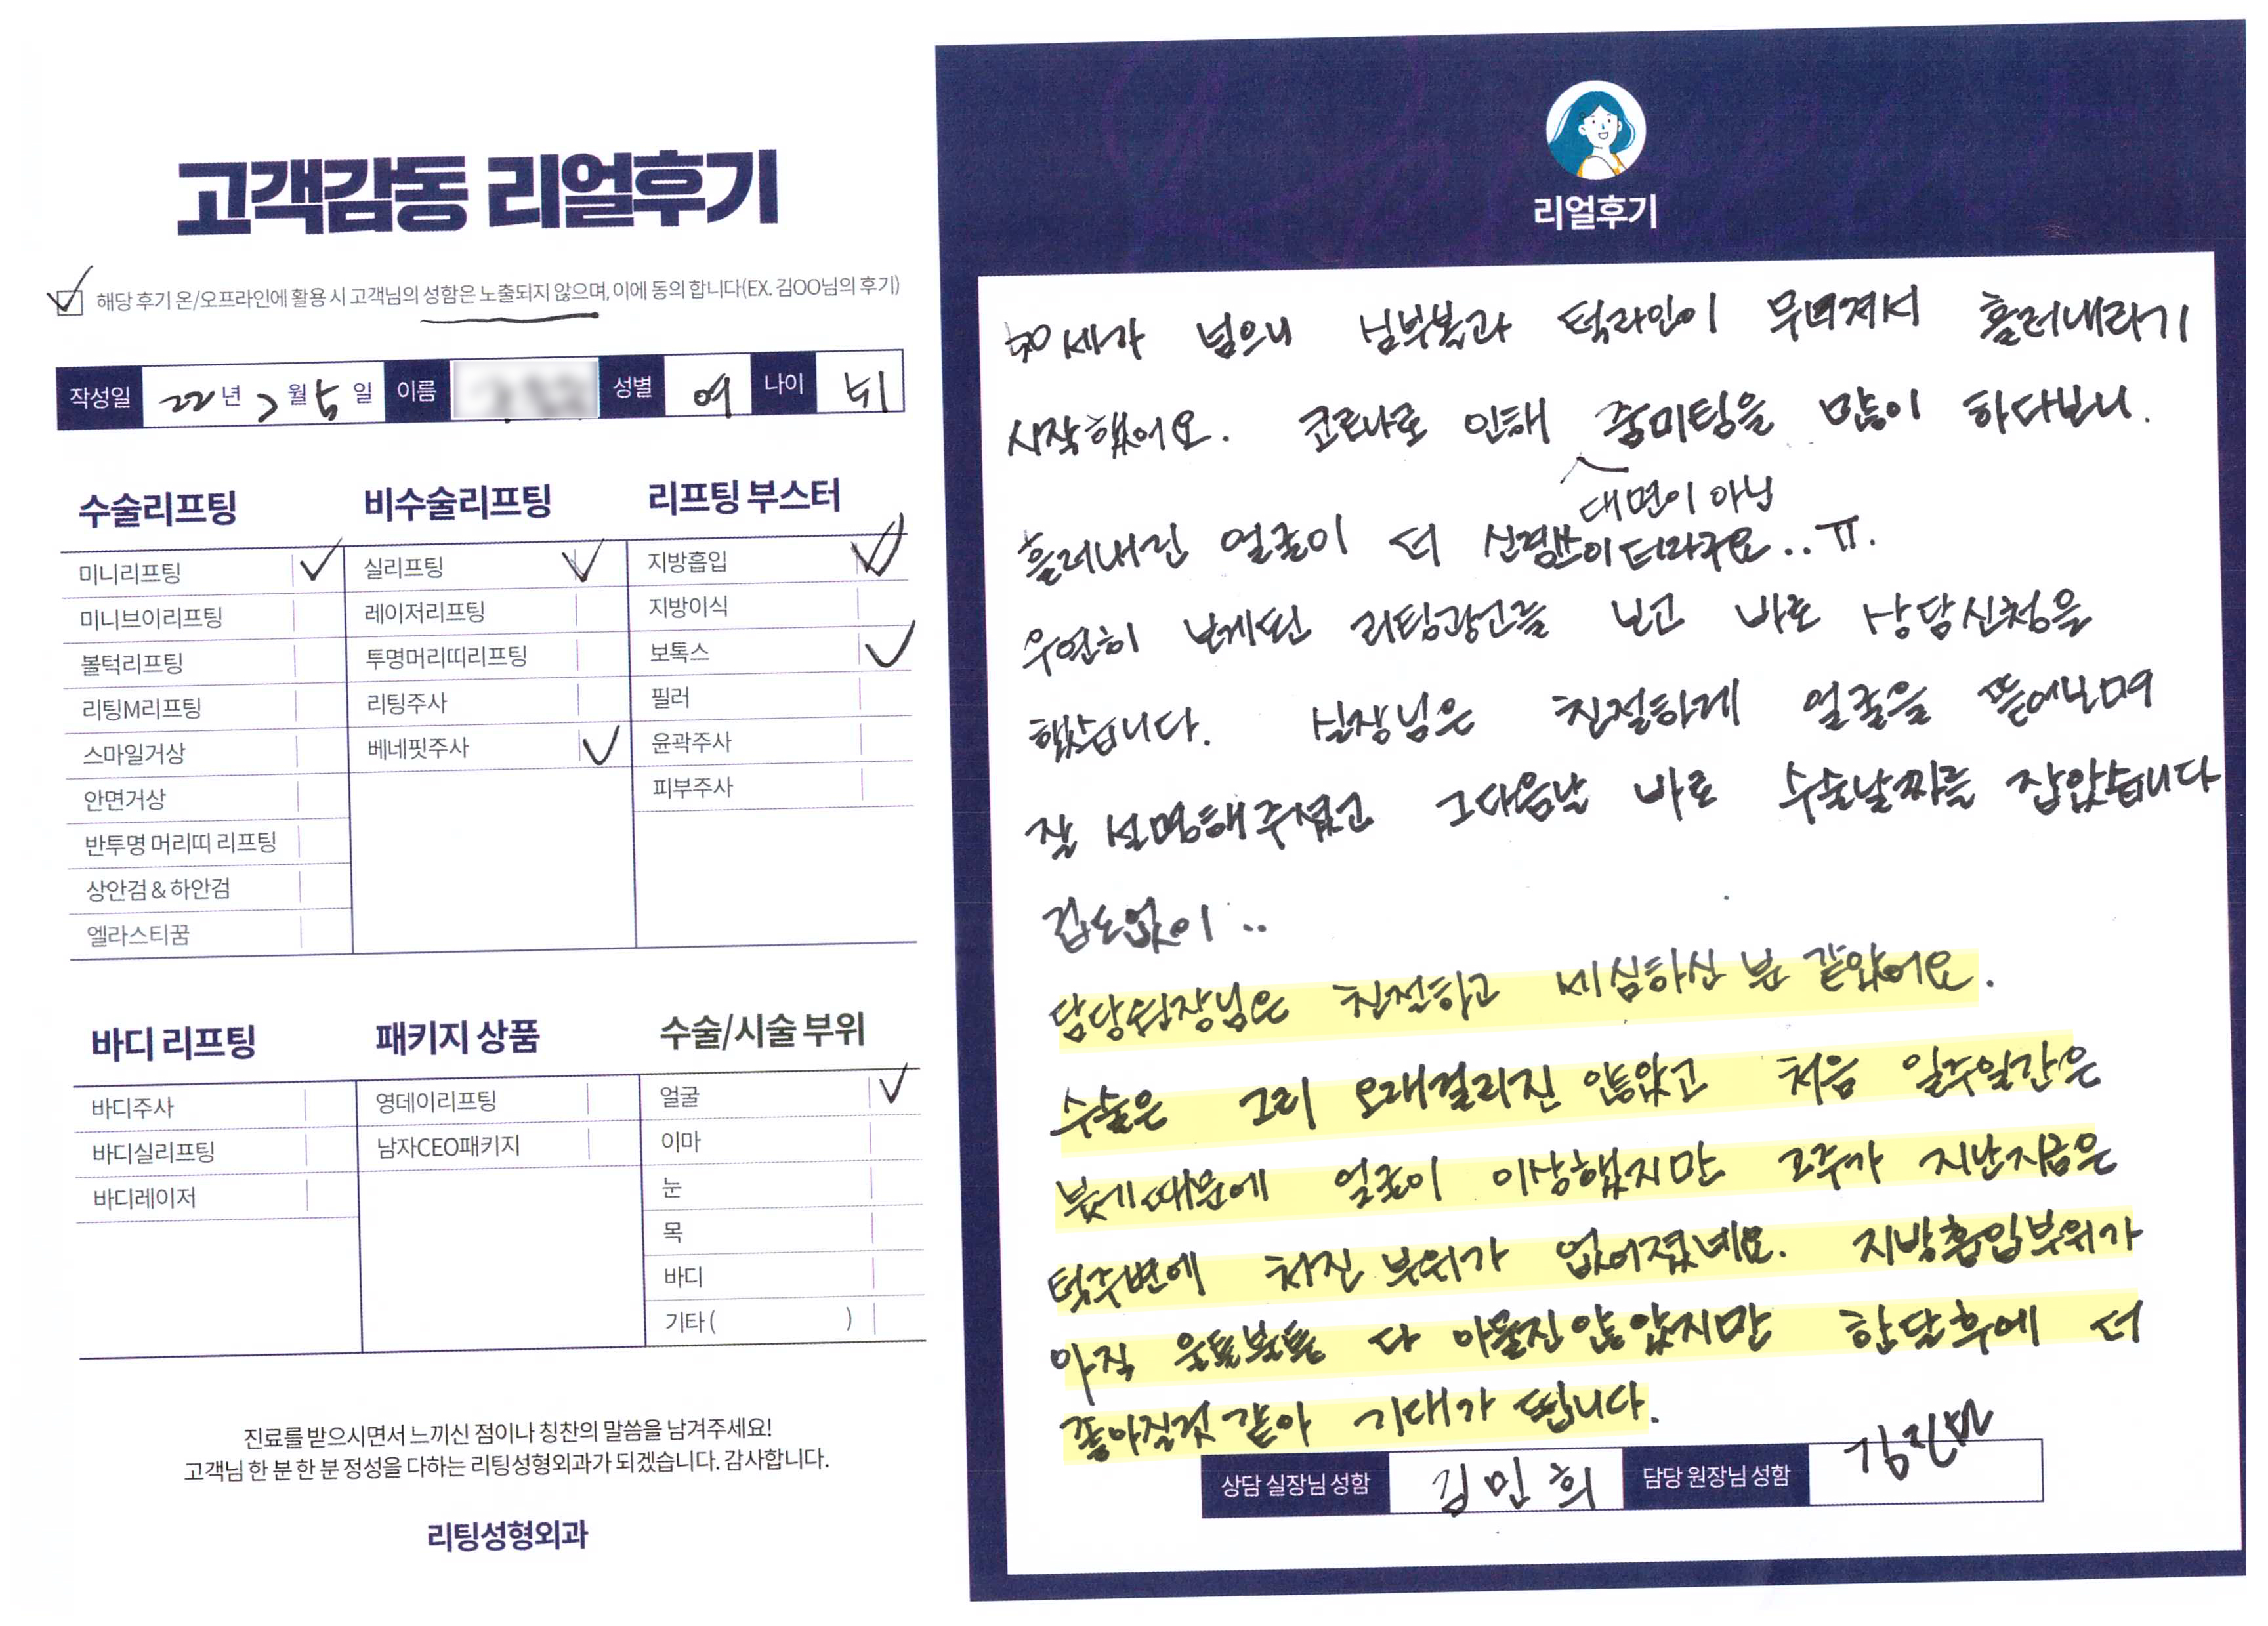 고객감동 리얼후기
해당 후기 온/오프라인에 활용 시 고객님의 성함은 노출되지 않으며, 이에 동의 합니다(EX. 김OO님의 후기)
작성일 22년 7월 5일 이름 성별 여 나이 51
수술리프팅
미니리프팅
미니브이리프팅
볼턱리프팅
리팅M리프팅
스마일거상
안면거상
반투명 머리띠 리프팅
상안검 & 하안검
엘라스티꿈
비수술리프팅
실리프팅
레이저리프팅
투명머리띠리프팅
리팅주사
베네핏주사
리프팅 부스터
지방흡입
지방이식
보톡스
필러
윤곽주사
피부주사
바디 리프팅
바디주사
바디실리프팅
바디레이저
패키지 상품
영데이리프팅
남자CEO패키지
수술/시술 부위
얼굴
이마
눈
목
바디
기타 ( )
진료를 받으시면서 느끼신 점이나 칭찬의 말씀을 남겨주세요!
고객님 한 분 한 분 정성을 다하는 리팅성형외과가 되겠습니다. 감사합니다.
리팅성형외과
리얼후기
50세가 넘으니 턱라인이 무너져서 흘러내리기
시작했어요. 코로나로 인해 줌미팅을 많이 하다보니.
대면이 아닌
흘러내린 얼굴이 더 신경쓰이더라구요..ㅠ.
우연히 보게된 리팅광고를 보고 바로 상담신청을
했습니다. 실장님은 친절하게 얼굴을 뜯어보며
잘 설명해주셨고 그다음날 바로 수술날짜를 잡았습니다
겁도없이..
담당원장님은 친절하고 세심하신 분 같았어요.
수술은 그리 오래걸리진 않았고 처음 일주일간은
붓기때문에 얼굴이 이상했지만 2주가 지난지금은
턱주변에 처진 부위가 없어졌네요. 지방흡입부위가
아직 울퉁불퉁 다 아물진 않았지만 한달후에 더
좋아질것 같아 기대가 됩니다.
상담 실장님 성함 김민희 담당 원장님 성함